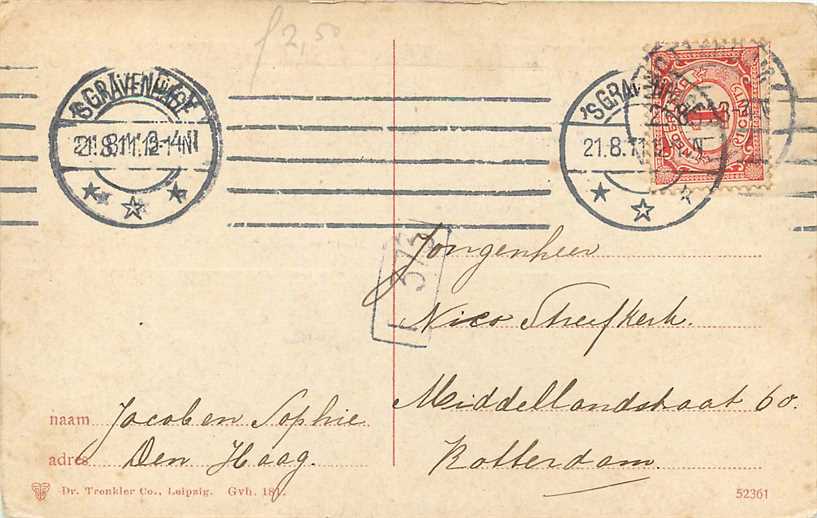 f 2,50
'S GRAVENHAGE
21.8.11.12-1N
'SGRAV
21.8.11.1
1
Jongenheer
Nico Streefkerk.
Middellandstraat 60.
Rotterdam.
naam Jacob en Sophie
adres Den Haag.
Dr. Trenkler Co., Leipzig. Gvh. 181.
52361